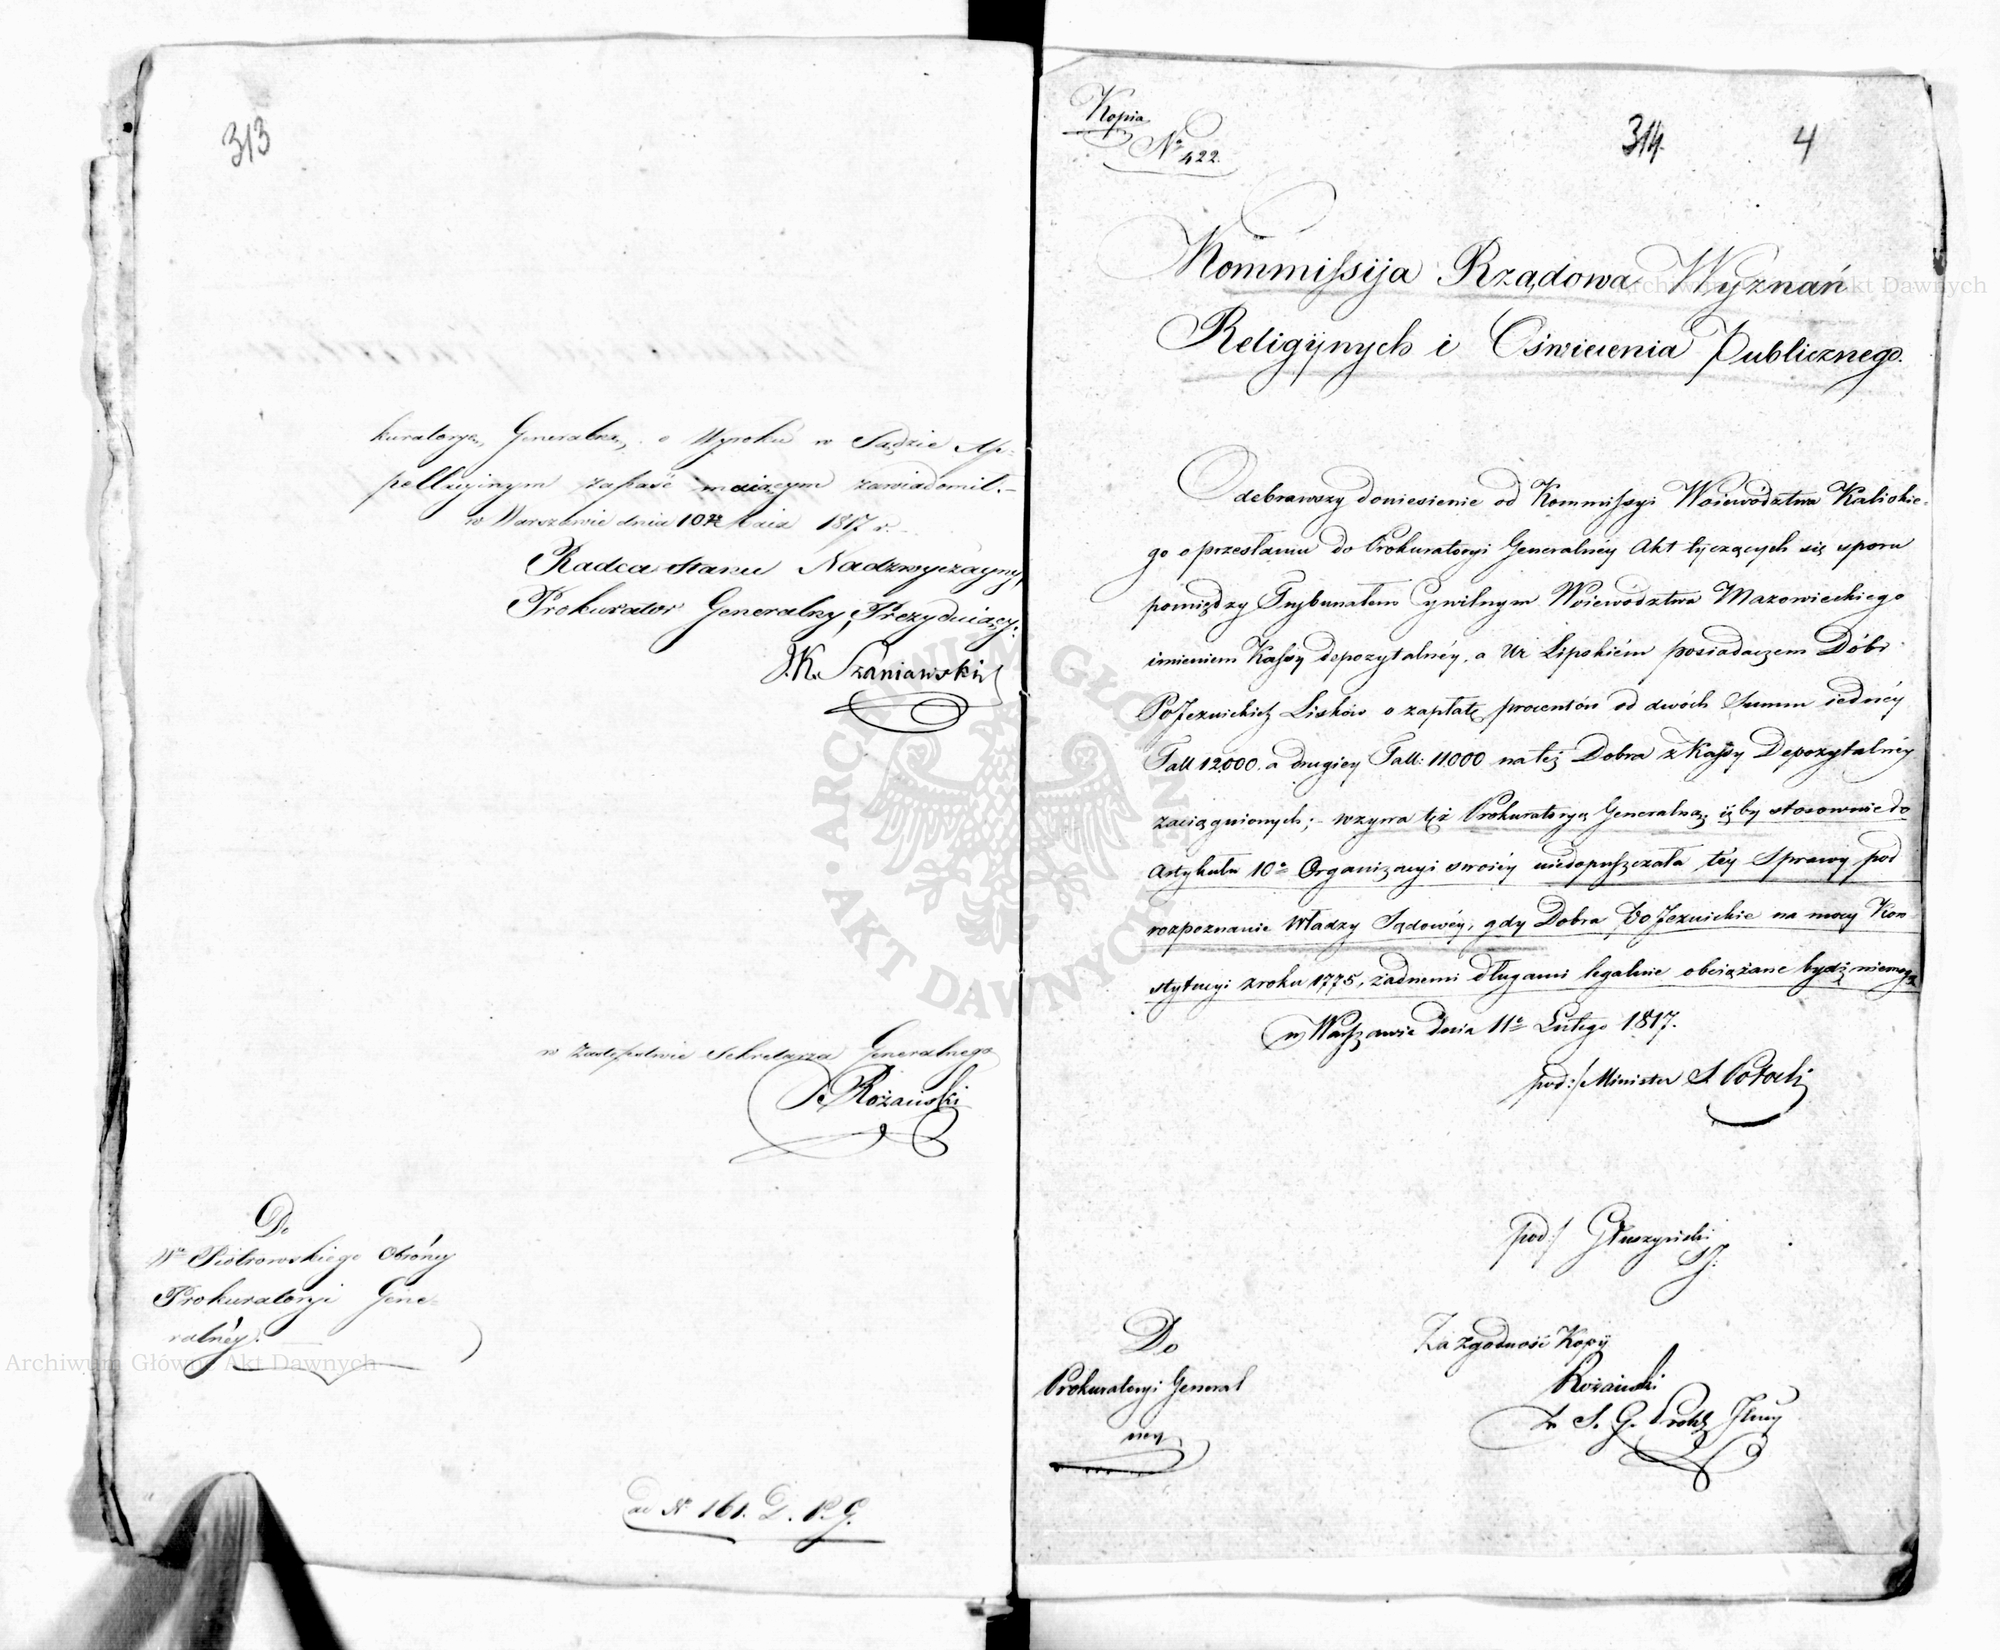 313
kuratoryą Generalną, o Wyroku w Sądzie Ap-
pellacyinym zapaść maiącym zawiadomił.-
w Warszawie dnia 10 Maia 1817 r.
Radca Stanu Nadzwyczayny,
Prokurator Generalny, Prezyduiący.
J.K. Szaniawski
w Zastępstwie Sekretarza Generalnego
Różański
Do
Wo Piotrowskiego Obrońcy
Prokuratoryi Gene-
ralnéy.
ad No 161. D. P.G.
Kopia
No 422.
314. 4
Kommissija Rządowa Wyznań
Religijnych i Oświecenia Publicznego.
Odebrawszy doniesienie od Kommissyi Woiewództwa Kaliskie-
go o przesłaniu do Prokuratoryi Generalnéy Akt tyczących się sporu
pomiędzy Trybunałem Cywilnym Woiewództwa Mazowieckiego
imieniem Kassy depozytalnéy, a Ur Lipskiém posiadaczem Dóbr
PoJezuickich Lisków o zapłatę procentów od dwóch Summ iednéy
Tall 12000. a drugiey Tall: 11000 na też Dobra z Kassy Depozytalnéy
zaciągnionych; - wzywa też Prokuratoryą Generalną, iżby stosownie do
Artykułu 10o Organizacyi swoiéy niedopuszczała téy Sprawy pod
rozpoznanie Władzy Sądowéy, gdy Dobra PoJezuickie na mocy Kon
stytucyi z roku 1775, żadnemi długami legalnie obciążane bydź niemogą
w Warszawie dnia 11o Lutego 1817.
pod:/ Minister S. Potocki
pod:/ Głuszyński
SJ.
Do
Prokuratoryi General
ney
Za zgodność Kopij
Różański
Z. S. G. Prok
ARCHIWUM GŁÓWNE · AKT DAWNYCH ·
Archiwum Główne Akt Dawnych
Archiwum Główne Akt Dawnych